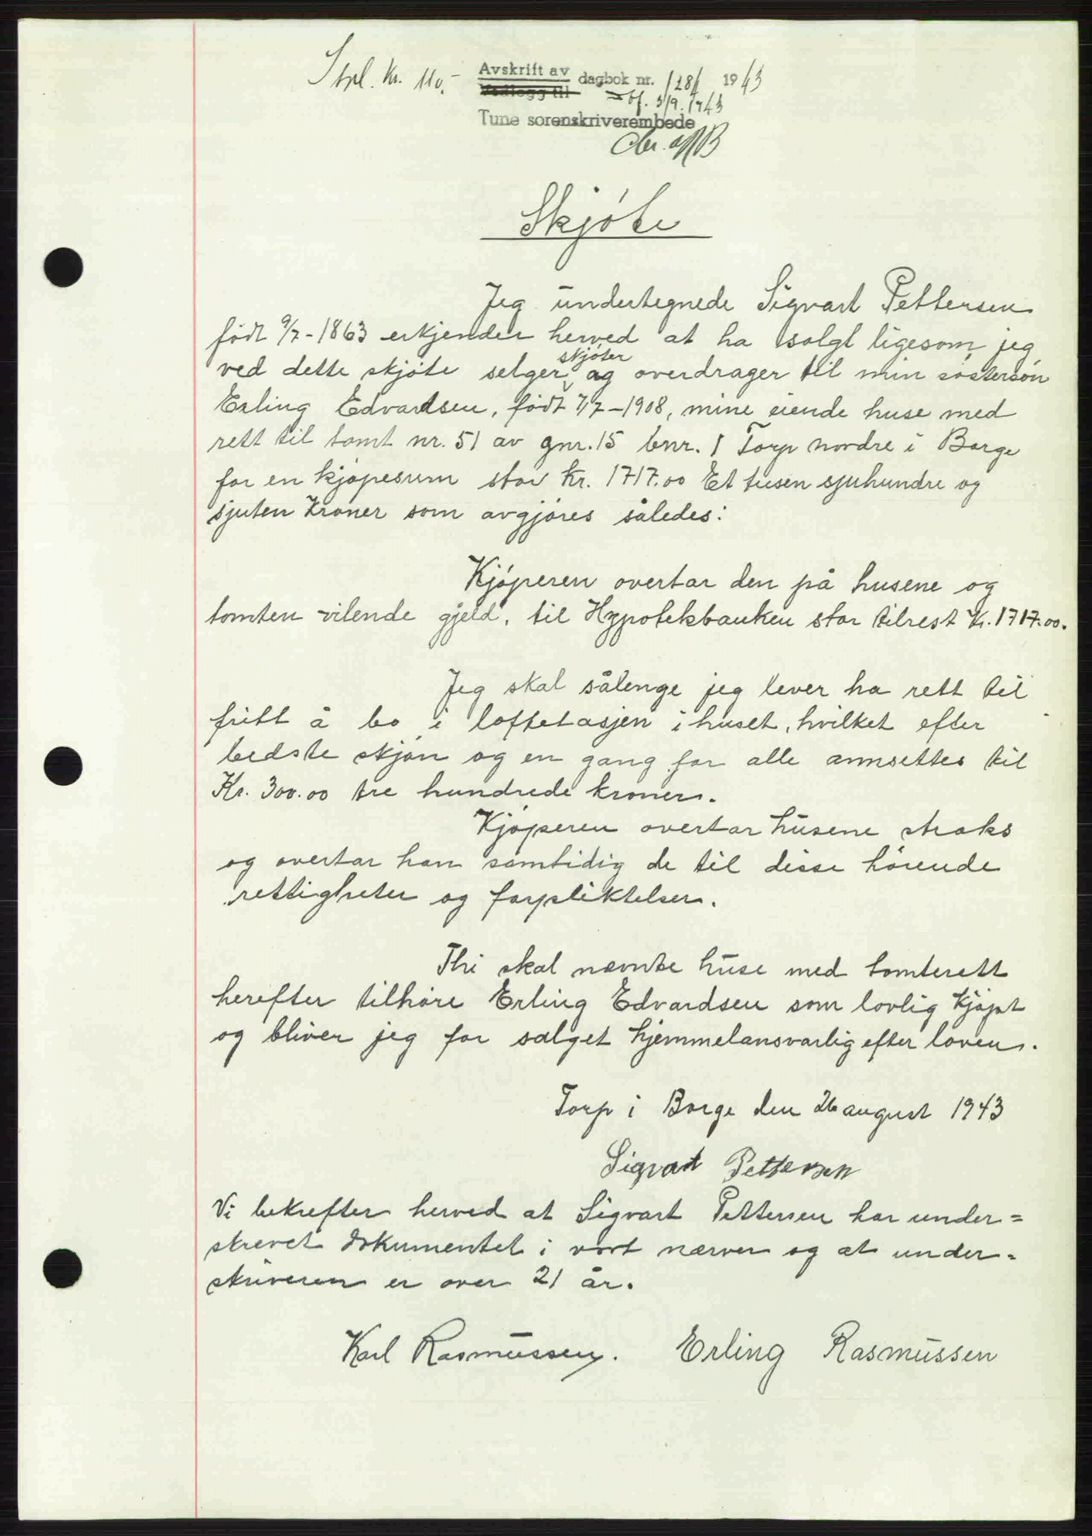 Stpl. Kr. 110.-
Avskrift av dagbok nr. 1281 1943
Vedlegg til
3/9. 1943
Tune sorenskriverembede
Skjøte
Jeg undertegnede Sigvart Pettersen
født 9/7-1863 erkjender herved at ha solgt ligesom jeg
skjøter
ved dette skjøte selger og overdrager til min søstersøn
Erling Edvardsen, født 7/7-1908, mine eiende huse med
rett til tomt nr. 51 av gnr. 15 bnr. 1 Torp nordre i Borge
for en kjøpesum stor Kr. 1717.00 Et tusen sjuhundre og
sjuten Kroner som avgjøres således:
Kjøperen overtar den på husene og
tomten vilende gjeld, til Hypotekbanken stor tilrest Kr. 1717.00.
Jeg skal sålenge jeg lever ha rett til
fritt å bo i loftetasjen i huset, hvilket efter
bedste skjøn og en gang for alle annsettes til
Kr. 300.00 tre hundrede kroner.
Kjøperen overtar husene straks
og overtar han samtidig de til disse hørende
rettigheter og forpliktelser.
Thi skal nævnte huse med tomterett
herefter tilhøre Erling Edvardsen som lovlig kjøpt
og bliver jeg for salget hjemmelansvarlig efter loven.
Torp i Borge den 26 august 1943
Sigvart Pettersen
Vi bekrefter herved at Sigvart Pettersen har under=
skrevet dokumentet i vort nærver og at under=
skriveren er over 21 år.
Karl Rasmussen. Erling Rasmussen